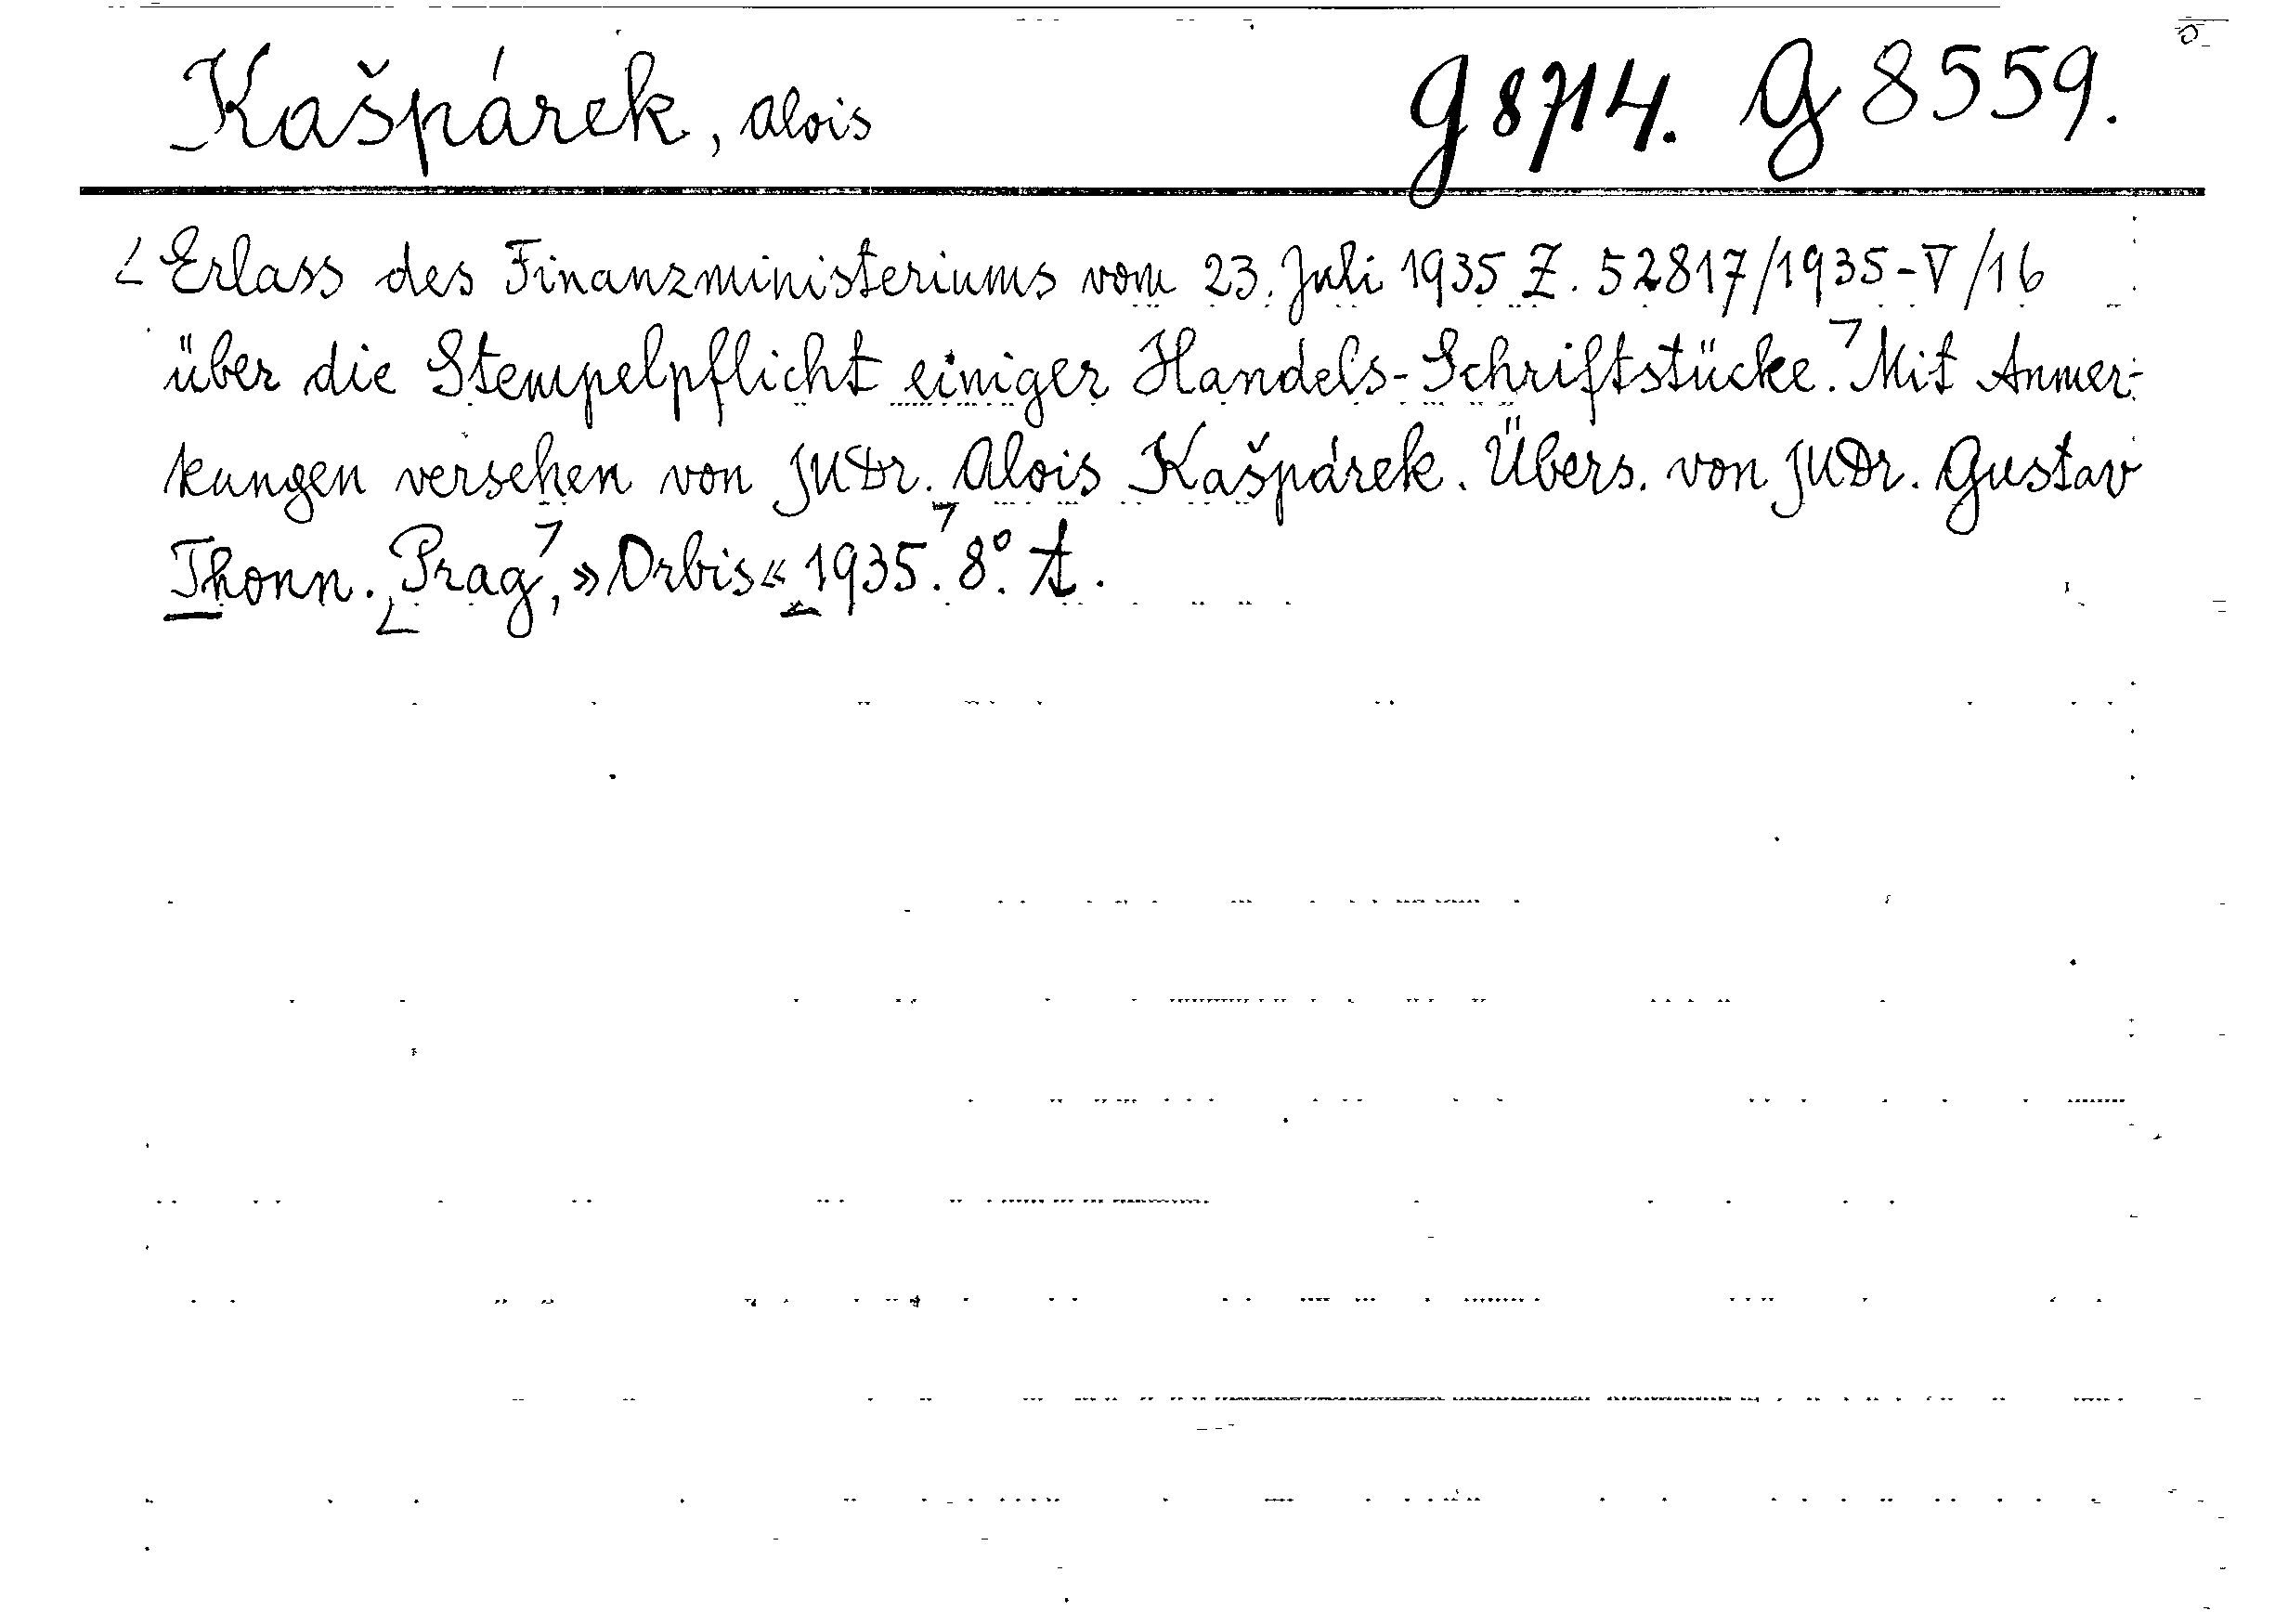 Kašpárek, Alois G 8714. G 8559.
Erlass des Finanzministeriums vom 23. Juli 1935 Z. 52817/1935-V/16
über die Stempelpflicht einiger Handels-Schriftstücke. Mit Anmer-
kungen versehen von JUDr. Alois Kašpárek. Übers. von JUDr. Gustav
Thonn. Prag, »Orbis« 1935. 8°. A.